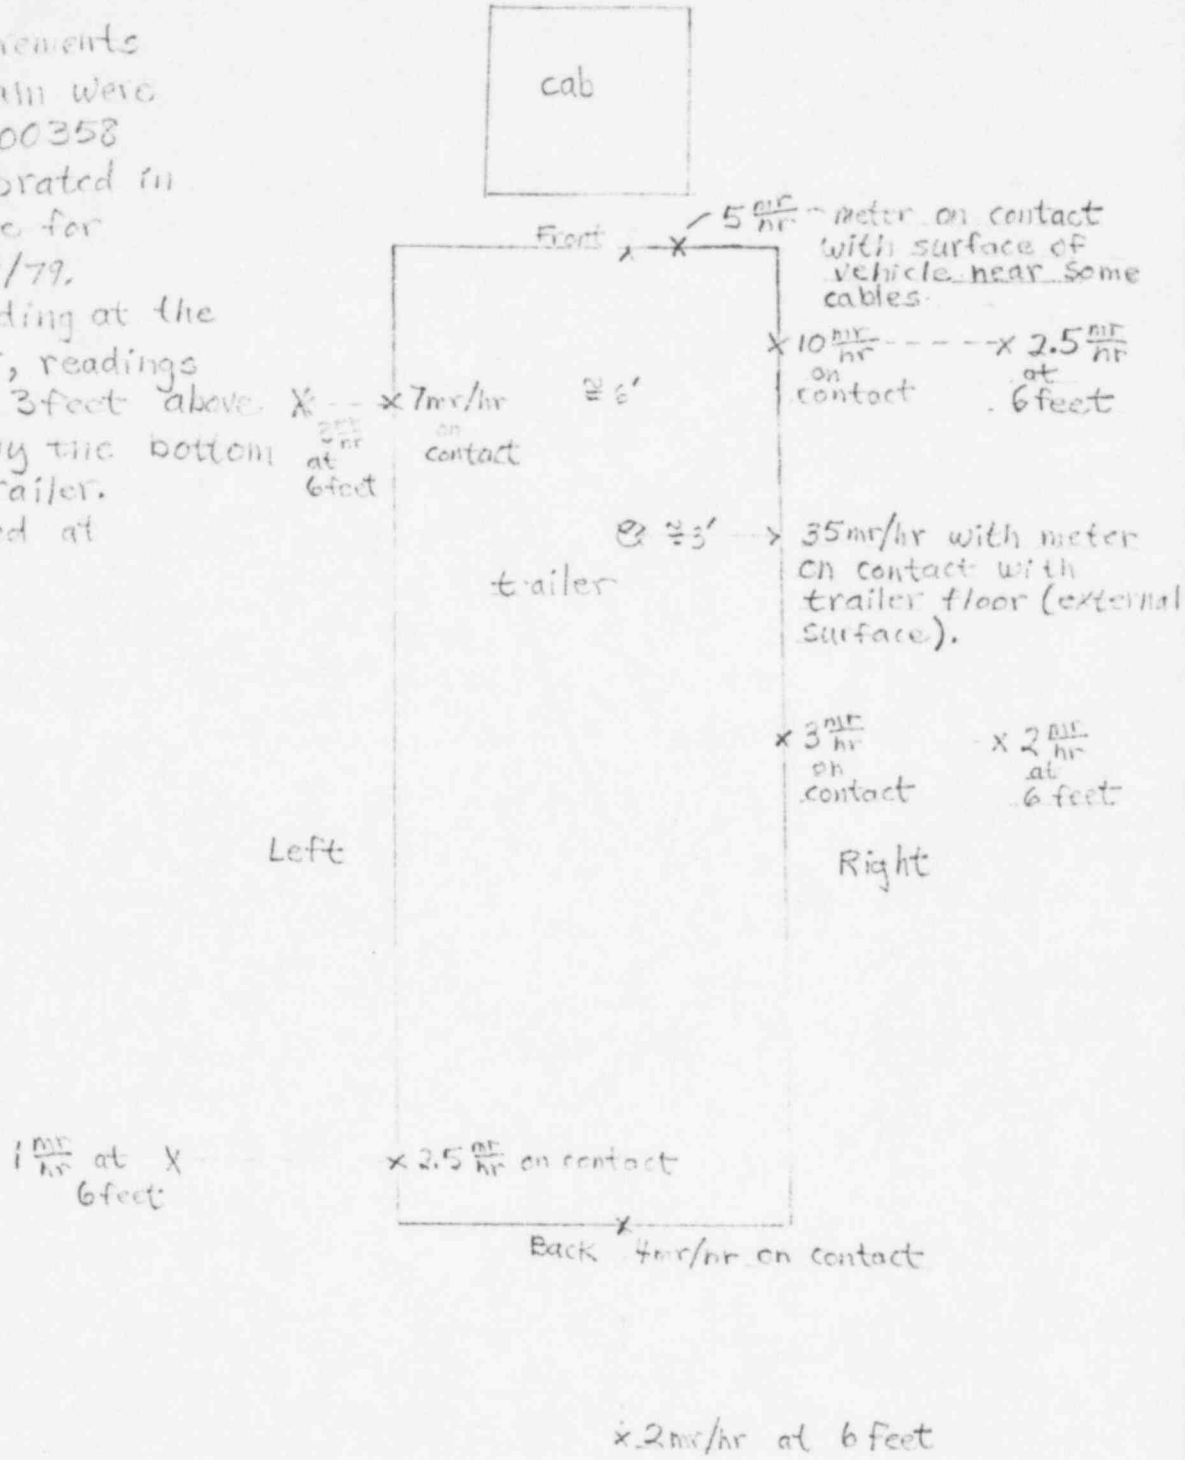 cab
were
00358
brated in
for
/79.
ding at the
, readings
3 feet above
y the bottom
railer.
ed at
Front
5 mr/hr - meter on contact
with surface of
vehicle near some
cables.
10 mr/hr
on
contact
2.5 mr/hr
at
6 feet
7mr/hr
on
contact
≅ 6'
at
6 feet
@ ≅ 3'
35mr/hr with meter
on contact with
trailer floor (external
surface).
trailer
3 mr/hr
on
contact
2 mr/hr
at
6 feet
Left
Right
1 mr/hr at
6 feet
2.5 mr/hr on contact
Back 4mr/hr on contact
2mr/hr at 6 feet